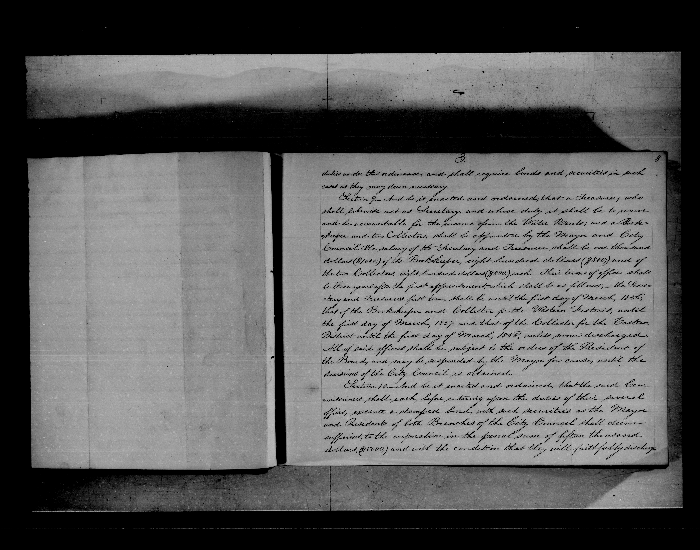 3.
duties under this ordinance and shall require bonds and securities in such
cases as they may deem necessary
Section And be it enacted and ordained, that a Treasurer, who
shall likewise act as Secretary and whose duty it shall be to receive
and be accountable for the from the Water Rents, and a Book-
Keeper and two Collectors, shall be appointed by the Mayor and City
Council: The salary of the Secretary and Treasurer shall be one thousand
dollars ($1000) of the Bookkeeper, eight hundred dollars ($800) and of
the two Collectors, eight hundred dollars ($800) each. Their term of office shall
be two years after the first appointment which shall be as follows; the Secre-
tary and Treasurer first term shall be until the first day of March,
that of the Bookkeeper and Collector for the Western District, until
the first day of March, and that of the Collector for the Eastern
District until the first day of March, unless sooner discharged.
All of said officers shall be subject to the orders of the President of
the Board, and may be suspended by the Mayor for cause, until the
of the City Council is obtained.
Section And be it enacted and ordained, that the said Com-
missioners shall, each before entering upon the duties of their several
offices, execute a bond, with such securities as the Mayor
and Presidents of both Branches of the City Council shall deem
sufficient, to the corporation in the penal sum of fifteen thousand
dollars, ($15000) and with the condition that they will faithfully discharge